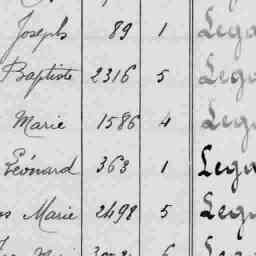 Joseph 89 1 Lega
Baptiste 2316 5 Lega
Marie 1586 4 Lega
Léonard 363 1 Lega
Marie 2498 5 Lega